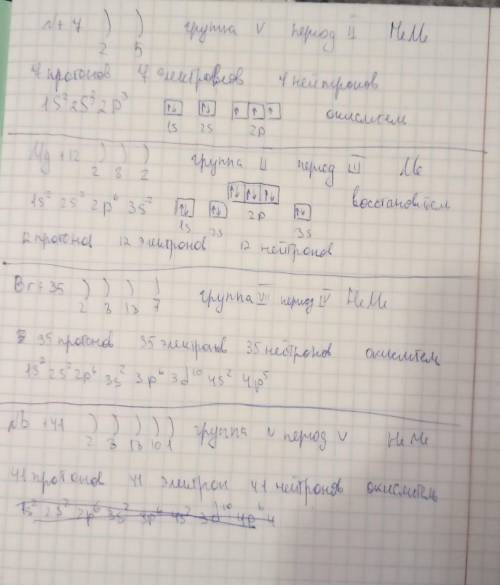 N +7 ) ) группа V период II НеМе
2 5
7 протонов 7 электронов 7 нейтронов
1S² 2S² 2p³ ↑↓ ↑↓ ↑ ↑ ↑ окислитель
1S 2S 2p
Mg +12 ) ) ) группа II период III Ме
2 8 2
1S² 2S² 2p⁶ 3S² ↑↓ ↑↓ ↑↓ ↑↓ ↑↓ ↑↓ восстановитель
1S 2S 2p 3S
12 протонов 12 электронов 12 нейтронов
Br +35 ) ) ) ) группа VII период IV НеМе
2 8 18 7
35 протонов 35 электронов 35 нейтронов окислитель
1S² 2S² 2p⁶ 3S² 3p⁶ 3d¹⁰ 4S² 4p⁵
Nb +41 ) ) ) ) ) группа V период V НеМе
2 8 18 10 1
41 протонов 41 электрон 41 нейтронов окислитель
1S² 2S² 2p⁶ 3S² 3p⁶ 4S² 3d¹⁰ 4p⁶ 4